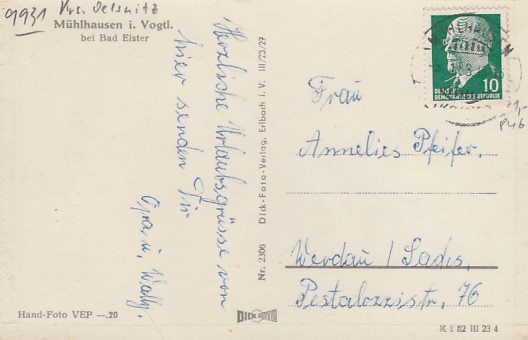 9931 Krs. Oelsnitz
Mühlhausen i. Vogtl.
bei Bad Elster
Herzliche Urlaubsgrüsse von
hier senden Dir
Opa u. Wally.
Hand-Foto VEP —.20
Nr. 2306 Dick-Foto-Verlag, Erlbach i. V. III/23/27
DICK
MÜHLHAUSEN
10
DEUTSCHE
DEMOKRATISCHE REPUBLIK
1,-
Frau
Annelies Pfeifer.
Werdau / Sachs.
Pestalozzistr. 76
K 1 62 III 23 4